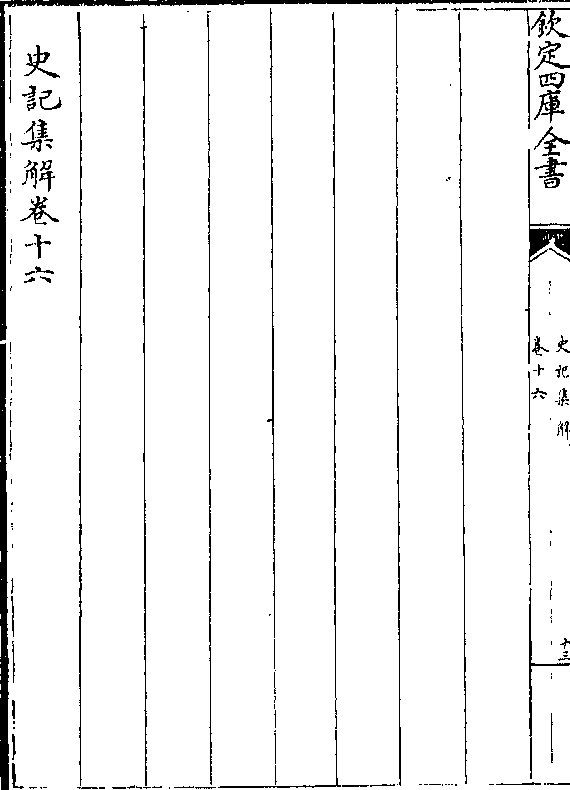 欽定四庫全書
史記集解
卷十六
十三
史記集解卷十六